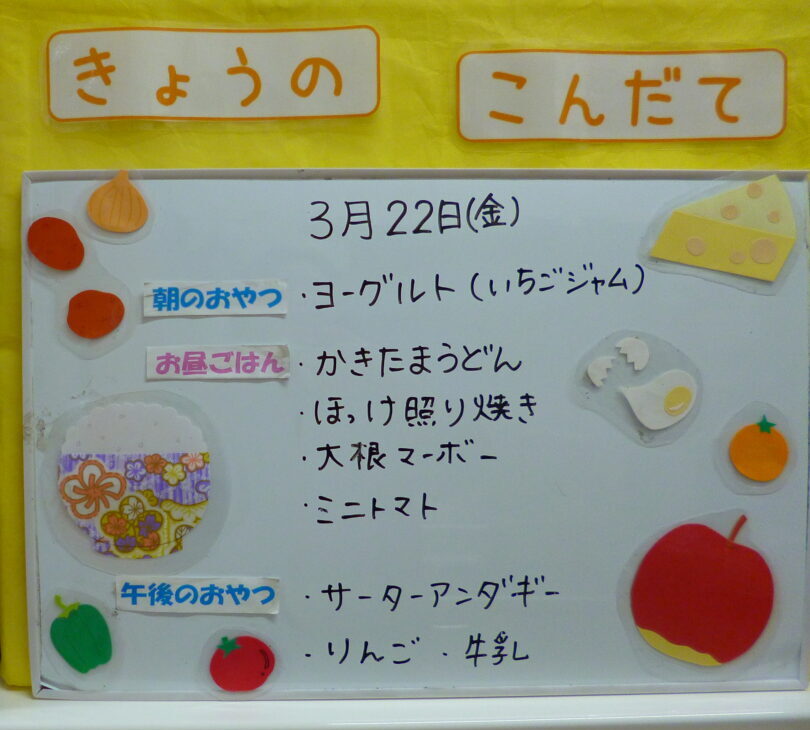 きょうの こんだて
3月22日(金)
朝のおやつ ・ヨーグルト(いちごジャム)
お昼ごはん ・かきたまうどん
・ほっけ照り焼き
・大根マーボー
・ミニトマト
午後のおやつ ・サーターアンダギー
・りんご ・牛乳